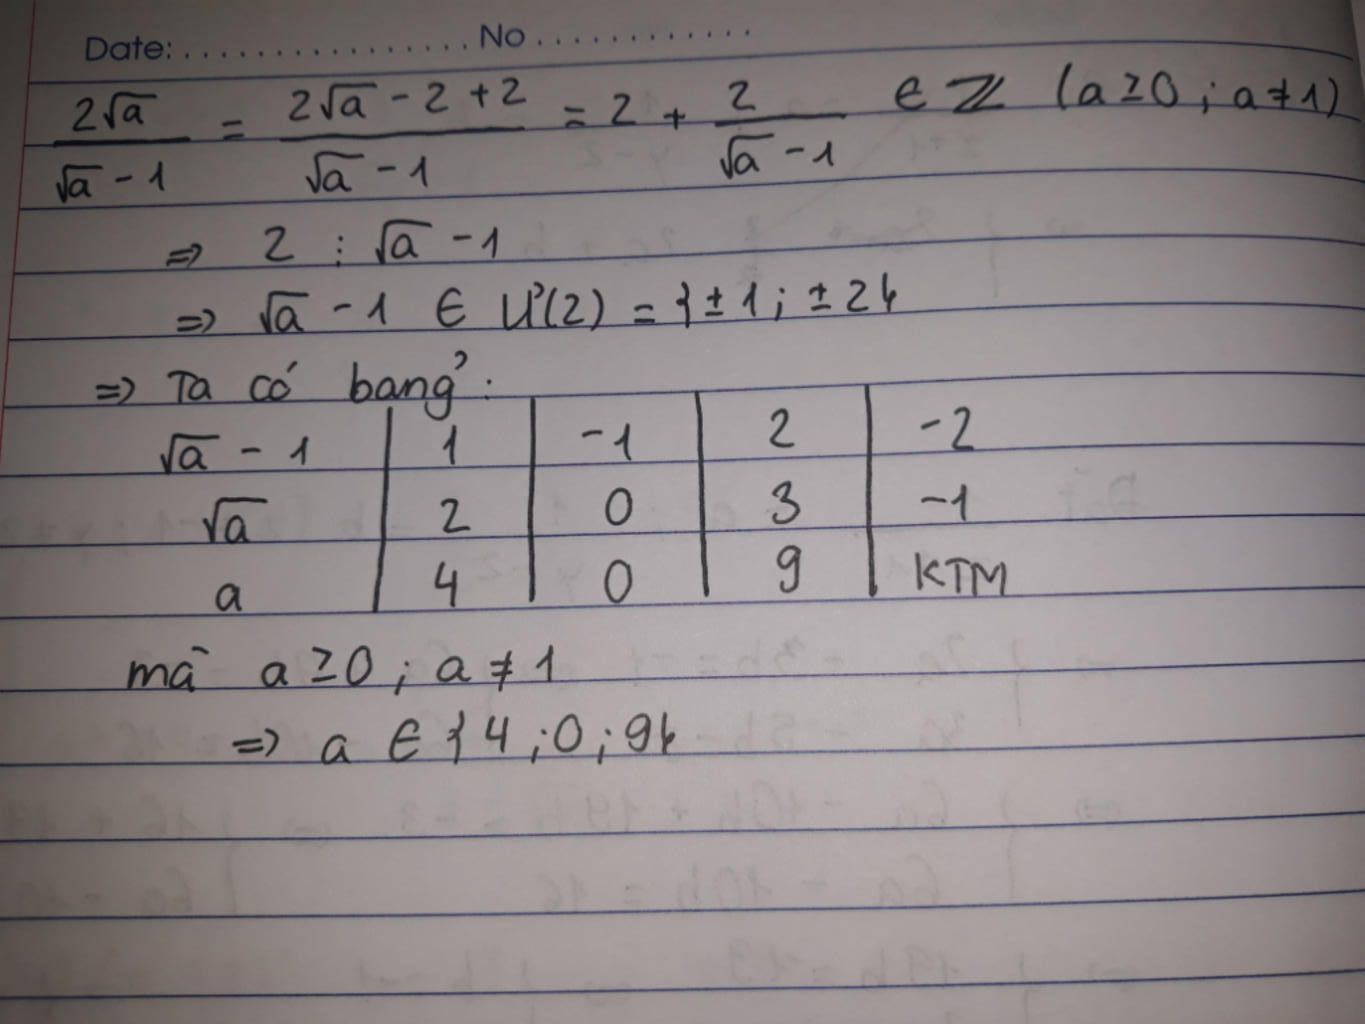 Date:................No............
2√a / (√a - 1) = (2√a - 2 + 2) / (√a - 1) = 2 + 2 / (√a - 1) ∈ ℤ (a ≥ 0 ; a ≠ 1)
=> 2 ⋮ √a - 1
=> √a - 1 ∈ Ư(2) = {±1 ; ±2}
=> Ta có bảng :
√a - 1 | 1 | -1 | 2 | -2
√a | 2 | 0 | 3 | -1
a | 4 | 0 | 9 | KTM
mà a ≥ 0 ; a ≠ 1
=> a ∈ {4 ; 0 ; 9}